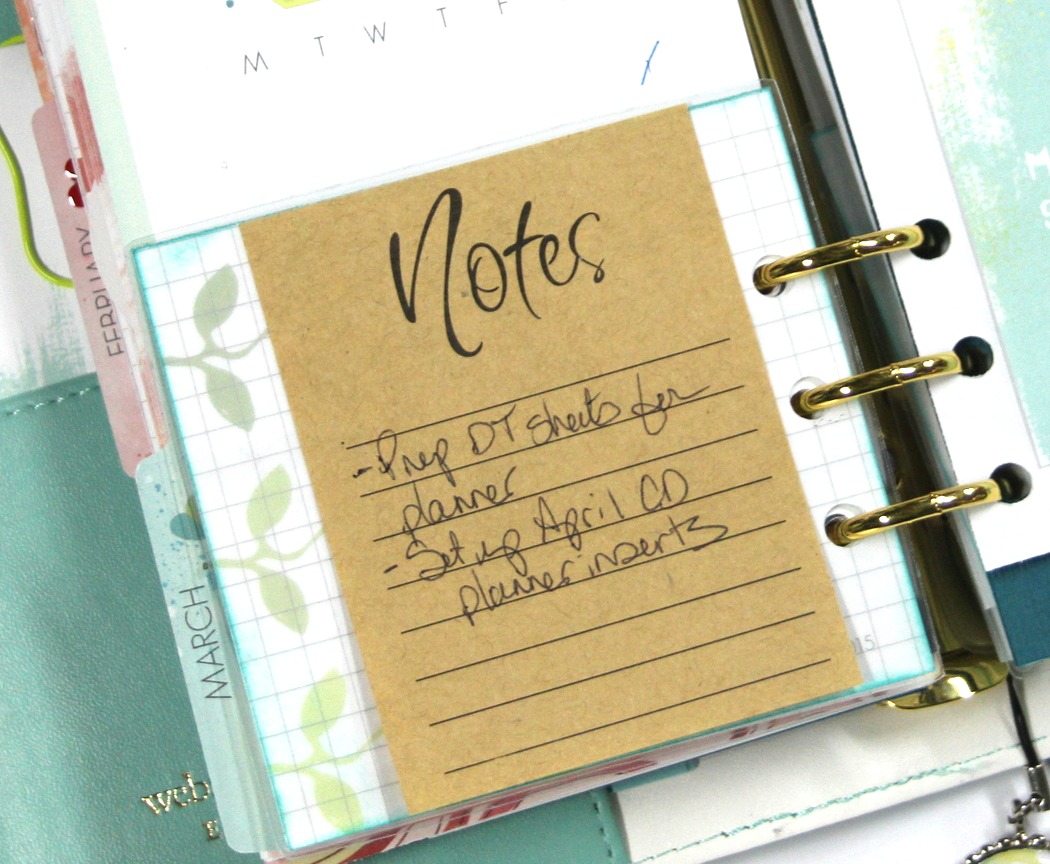 M T W T F
FEBRUARY
Notes
- Prep DT sheets for
planner
- Set up April CD
planner inserts
MARCH
15
web